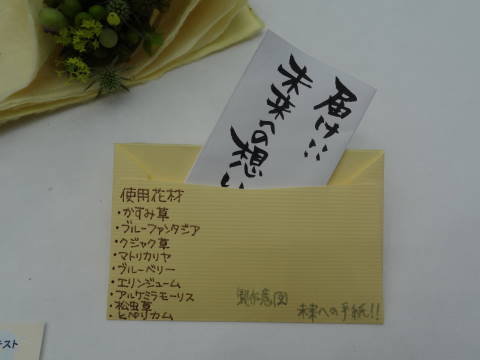 届け!!
未来への想い
使用花材
・かすみ草
・ブルーファンタジア
・クジャク草
・マトリカリヤ
・ブルーベリー
・エリンジューム
・アルケミラモーリス
・松虫草
・ヒペリカム
製作意図
未来への手紙!!
テスト